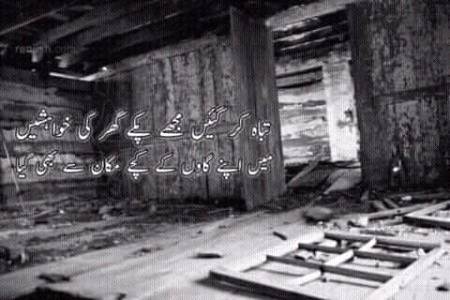 تباہ کر گئیں مجھے پکے گھر کی خواہشیں
میں اپنے گاوں کے کچے مکان سے بھی گیا